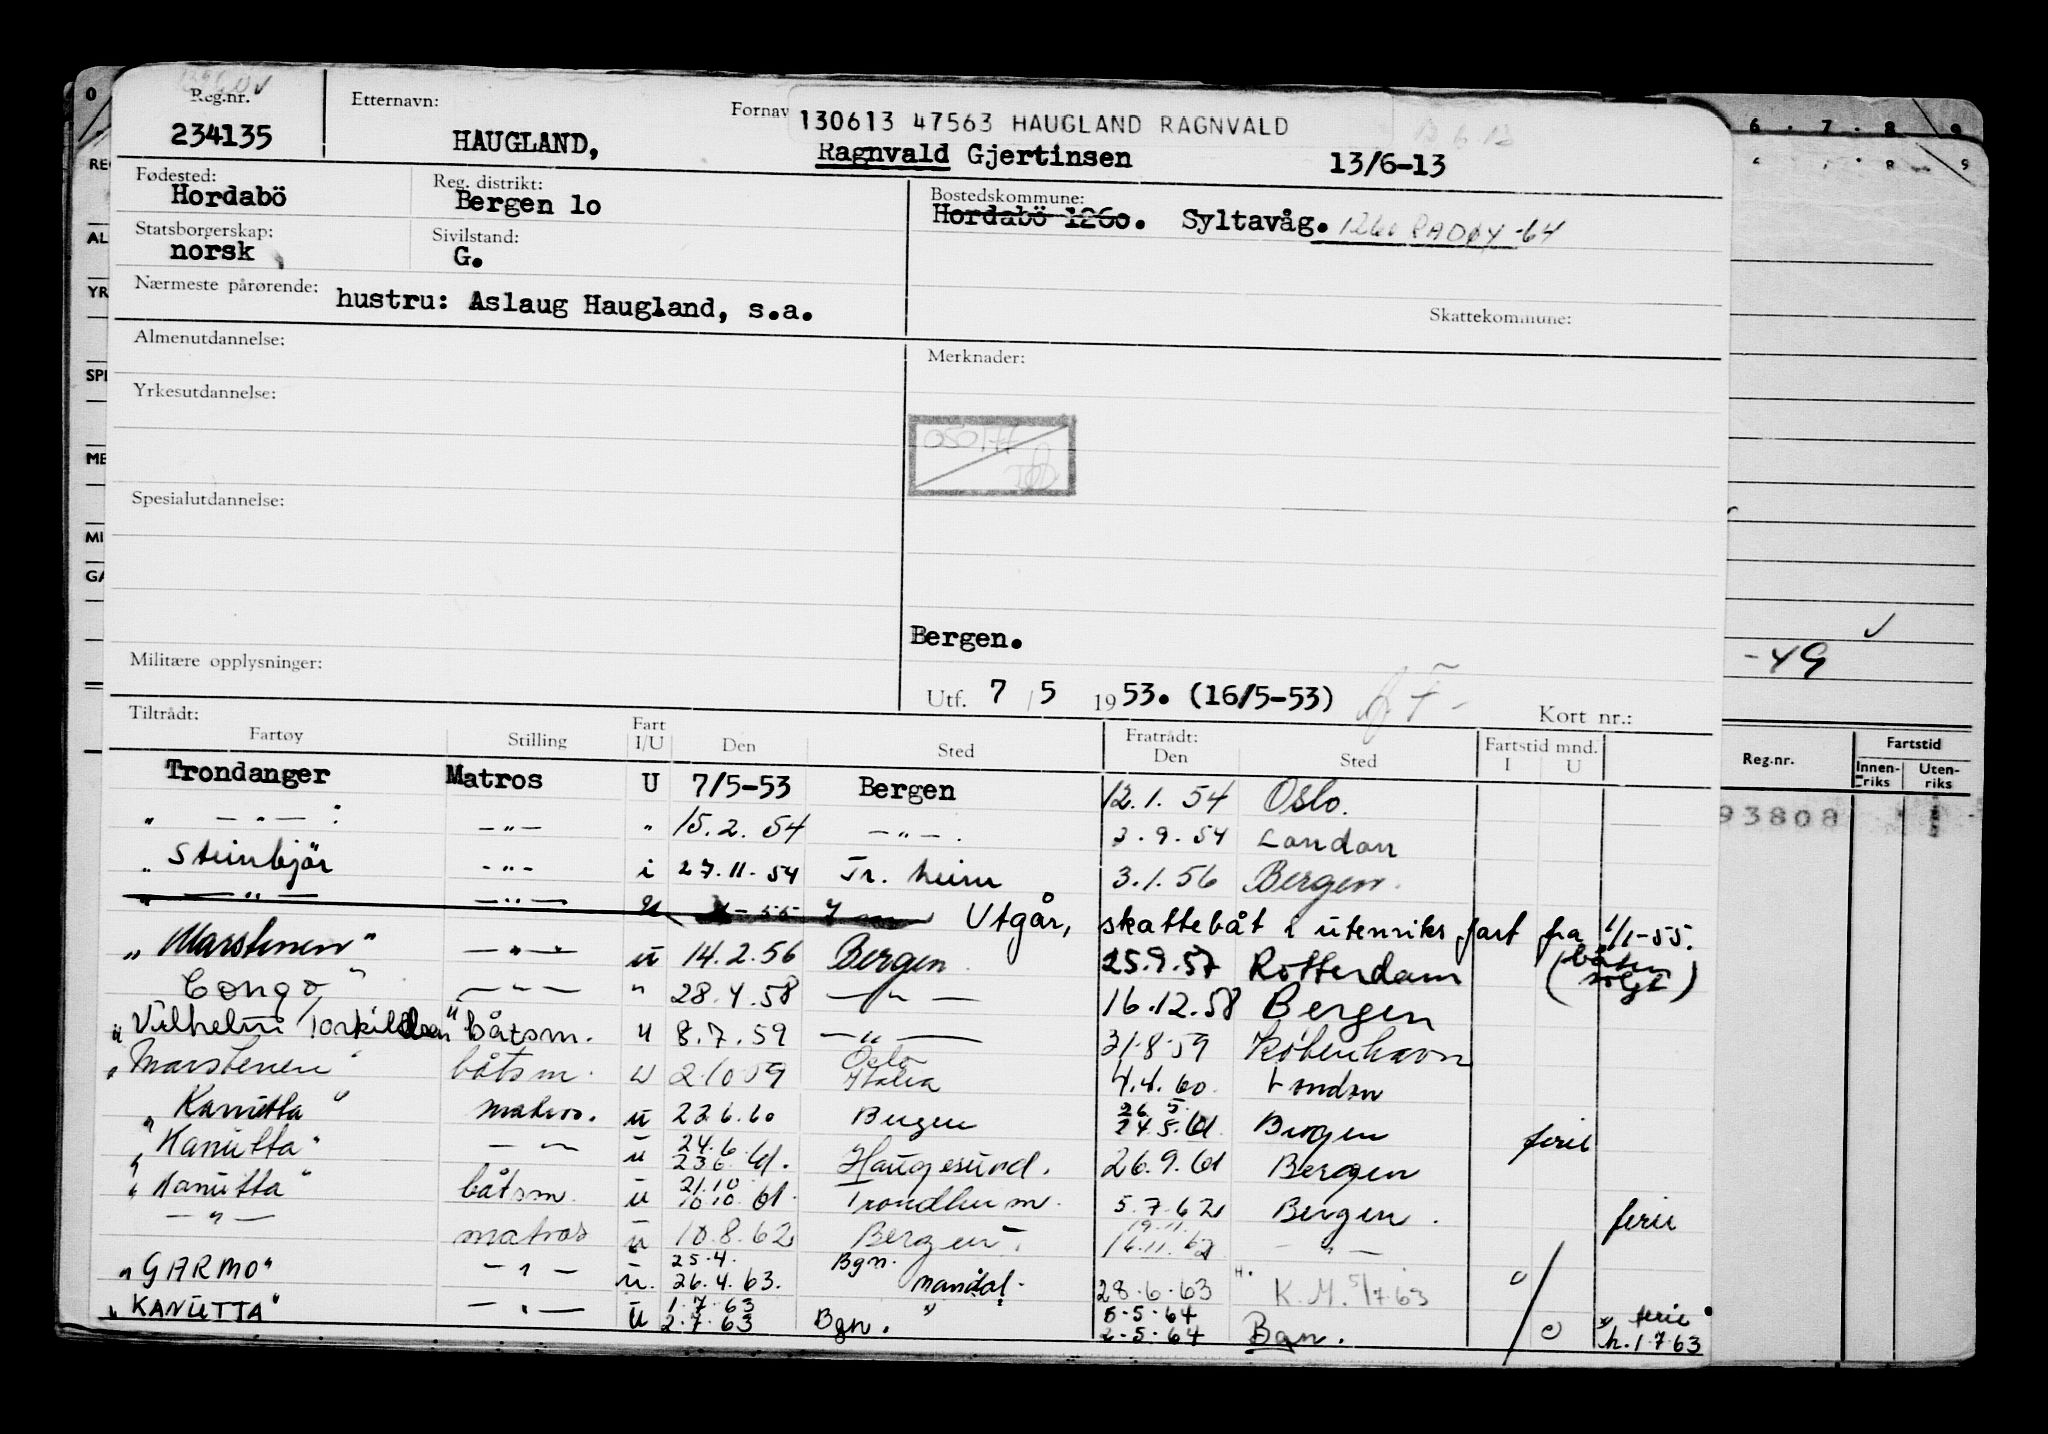 Reg.nr. Etternavn: Fornav 130613 47563 HAUGLAND RAGNVALD
234135 HAUGLAND, Ragnvald Gjertinsen 13/6-13
Fødested: Reg. distrikt: Bostedskommune:
Hordabö Bergen 1o Hordabö 126o. Syltavåg. 1260 RADØY -64
Statsborgerskap: Sivilstand:
norsk G.
Nærmeste pårørende: hustru: Aslaug Haugland, s.a.
Skattekommune:
Almenutdannelse: Merknader:
Yrkesutdannelse:
050177
Spesialutdannelse:
Bergen.
Militære opplysninger:
Utf. 7 / 5 1953. (16/5-53)
Kort nr.:
-49
Tiltrådt: Fratrådt:
Fartøy Stilling Fart I/U Den Sted Den Sted Fartstid mnd. I U
Reg.nr. Fartstid Innen-riks Uten-riks
93808
Trondanger Matros U 7/5-53 Bergen 12.1.54 Oslo.
" — " — : — " — " 15.2.54 — " — . 3.9.54 London
" Steinbjör — " — i 27.11.54 Tr. heim 3.1.56 Bergen.
" — " — — " — U -55 Utgår, skattebåt i utenriks fart fra 1/1-55.
" Marstenen " — " — u 14.2.56 Bergen 25.9.57 Rotterdam (båten solgt)
Congo " — " — " 28.4.58 — " — 16.12.58 Bergen
" Vilhelm Torkildsen " båtsm. u 8.7.59 — " — 31.8.59 København
" Marstenen " båtsm. u 2.10.59 Oslo Italia 4.4.60 London
" Kanutta " matros. u 22.6.60 Bergen 26.5. 24.5.61 Bergen ferie
" Kanutta " — " — u 24.6 23.6.61. Haugesund. 26.9.61 Bergen
" Kanutta " båtsm. u 21.10 10.10.61. Trondheim. 5.7.62 Bergen. ferie
— " — matros u 10.8.62 Bergen. 19.11. 16.11.62 — " —
" GARMO " — " — u. 25.4. 26.4.63. Bgn. Mandal. 28.6.63 K.M. 5/7.63
" KANUTTA " — " — U 1.7.63 2.7.63 Bgn. " 5-5-64 2-5-64 Bgn. ferie h. 1.7.63